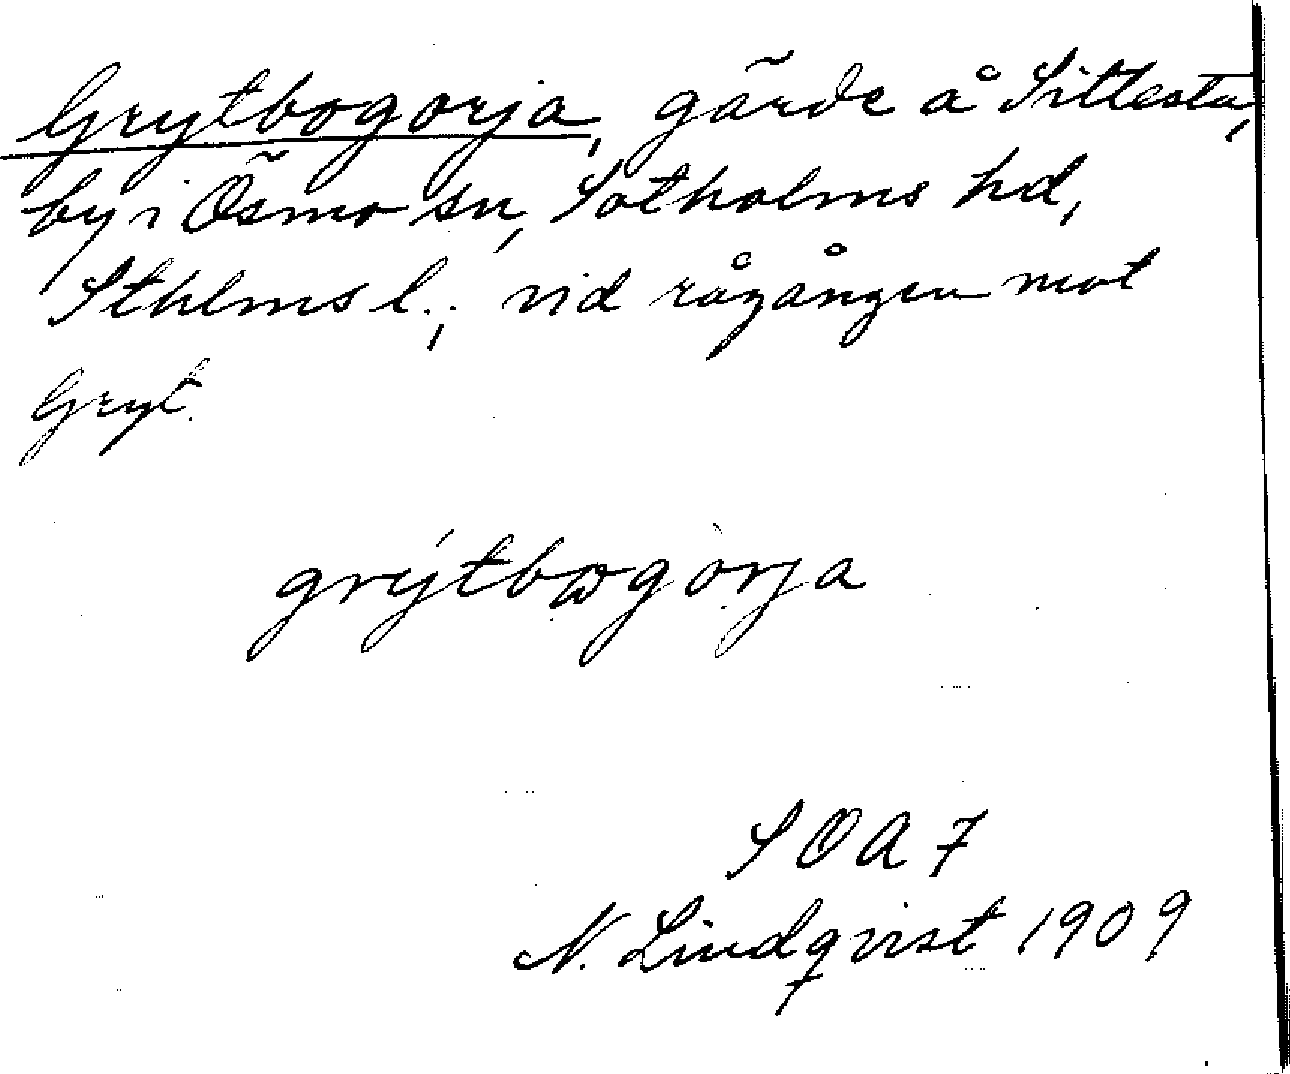 Grytbogorja, gärde å Sittesta,
by i Ösmo sn, Sotholms hd,
Sthlms l.; vid rågången mot
Gryt.
SOA 7
N. Lindqvist 1909